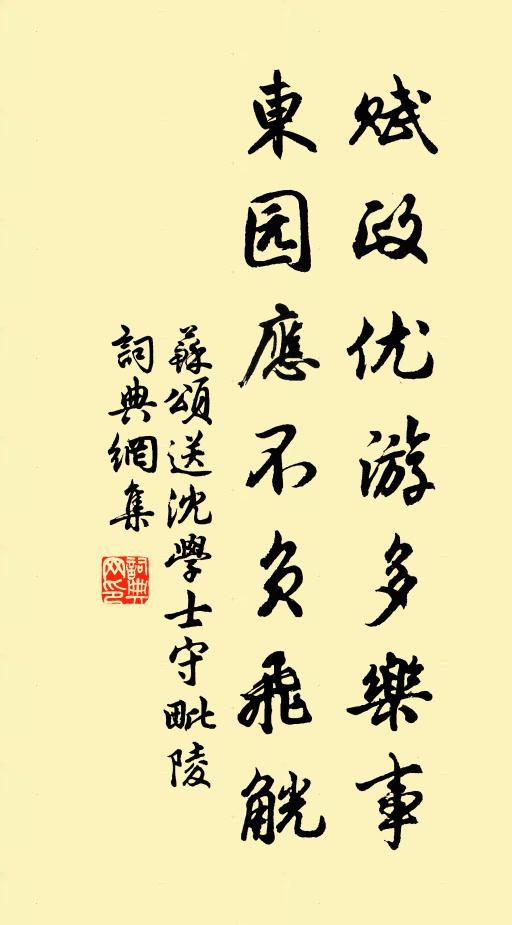 赋政优游多樂事
東园應不负飛觥
蘇頌送沈學士守毗陵
詞典網集
詞典网印